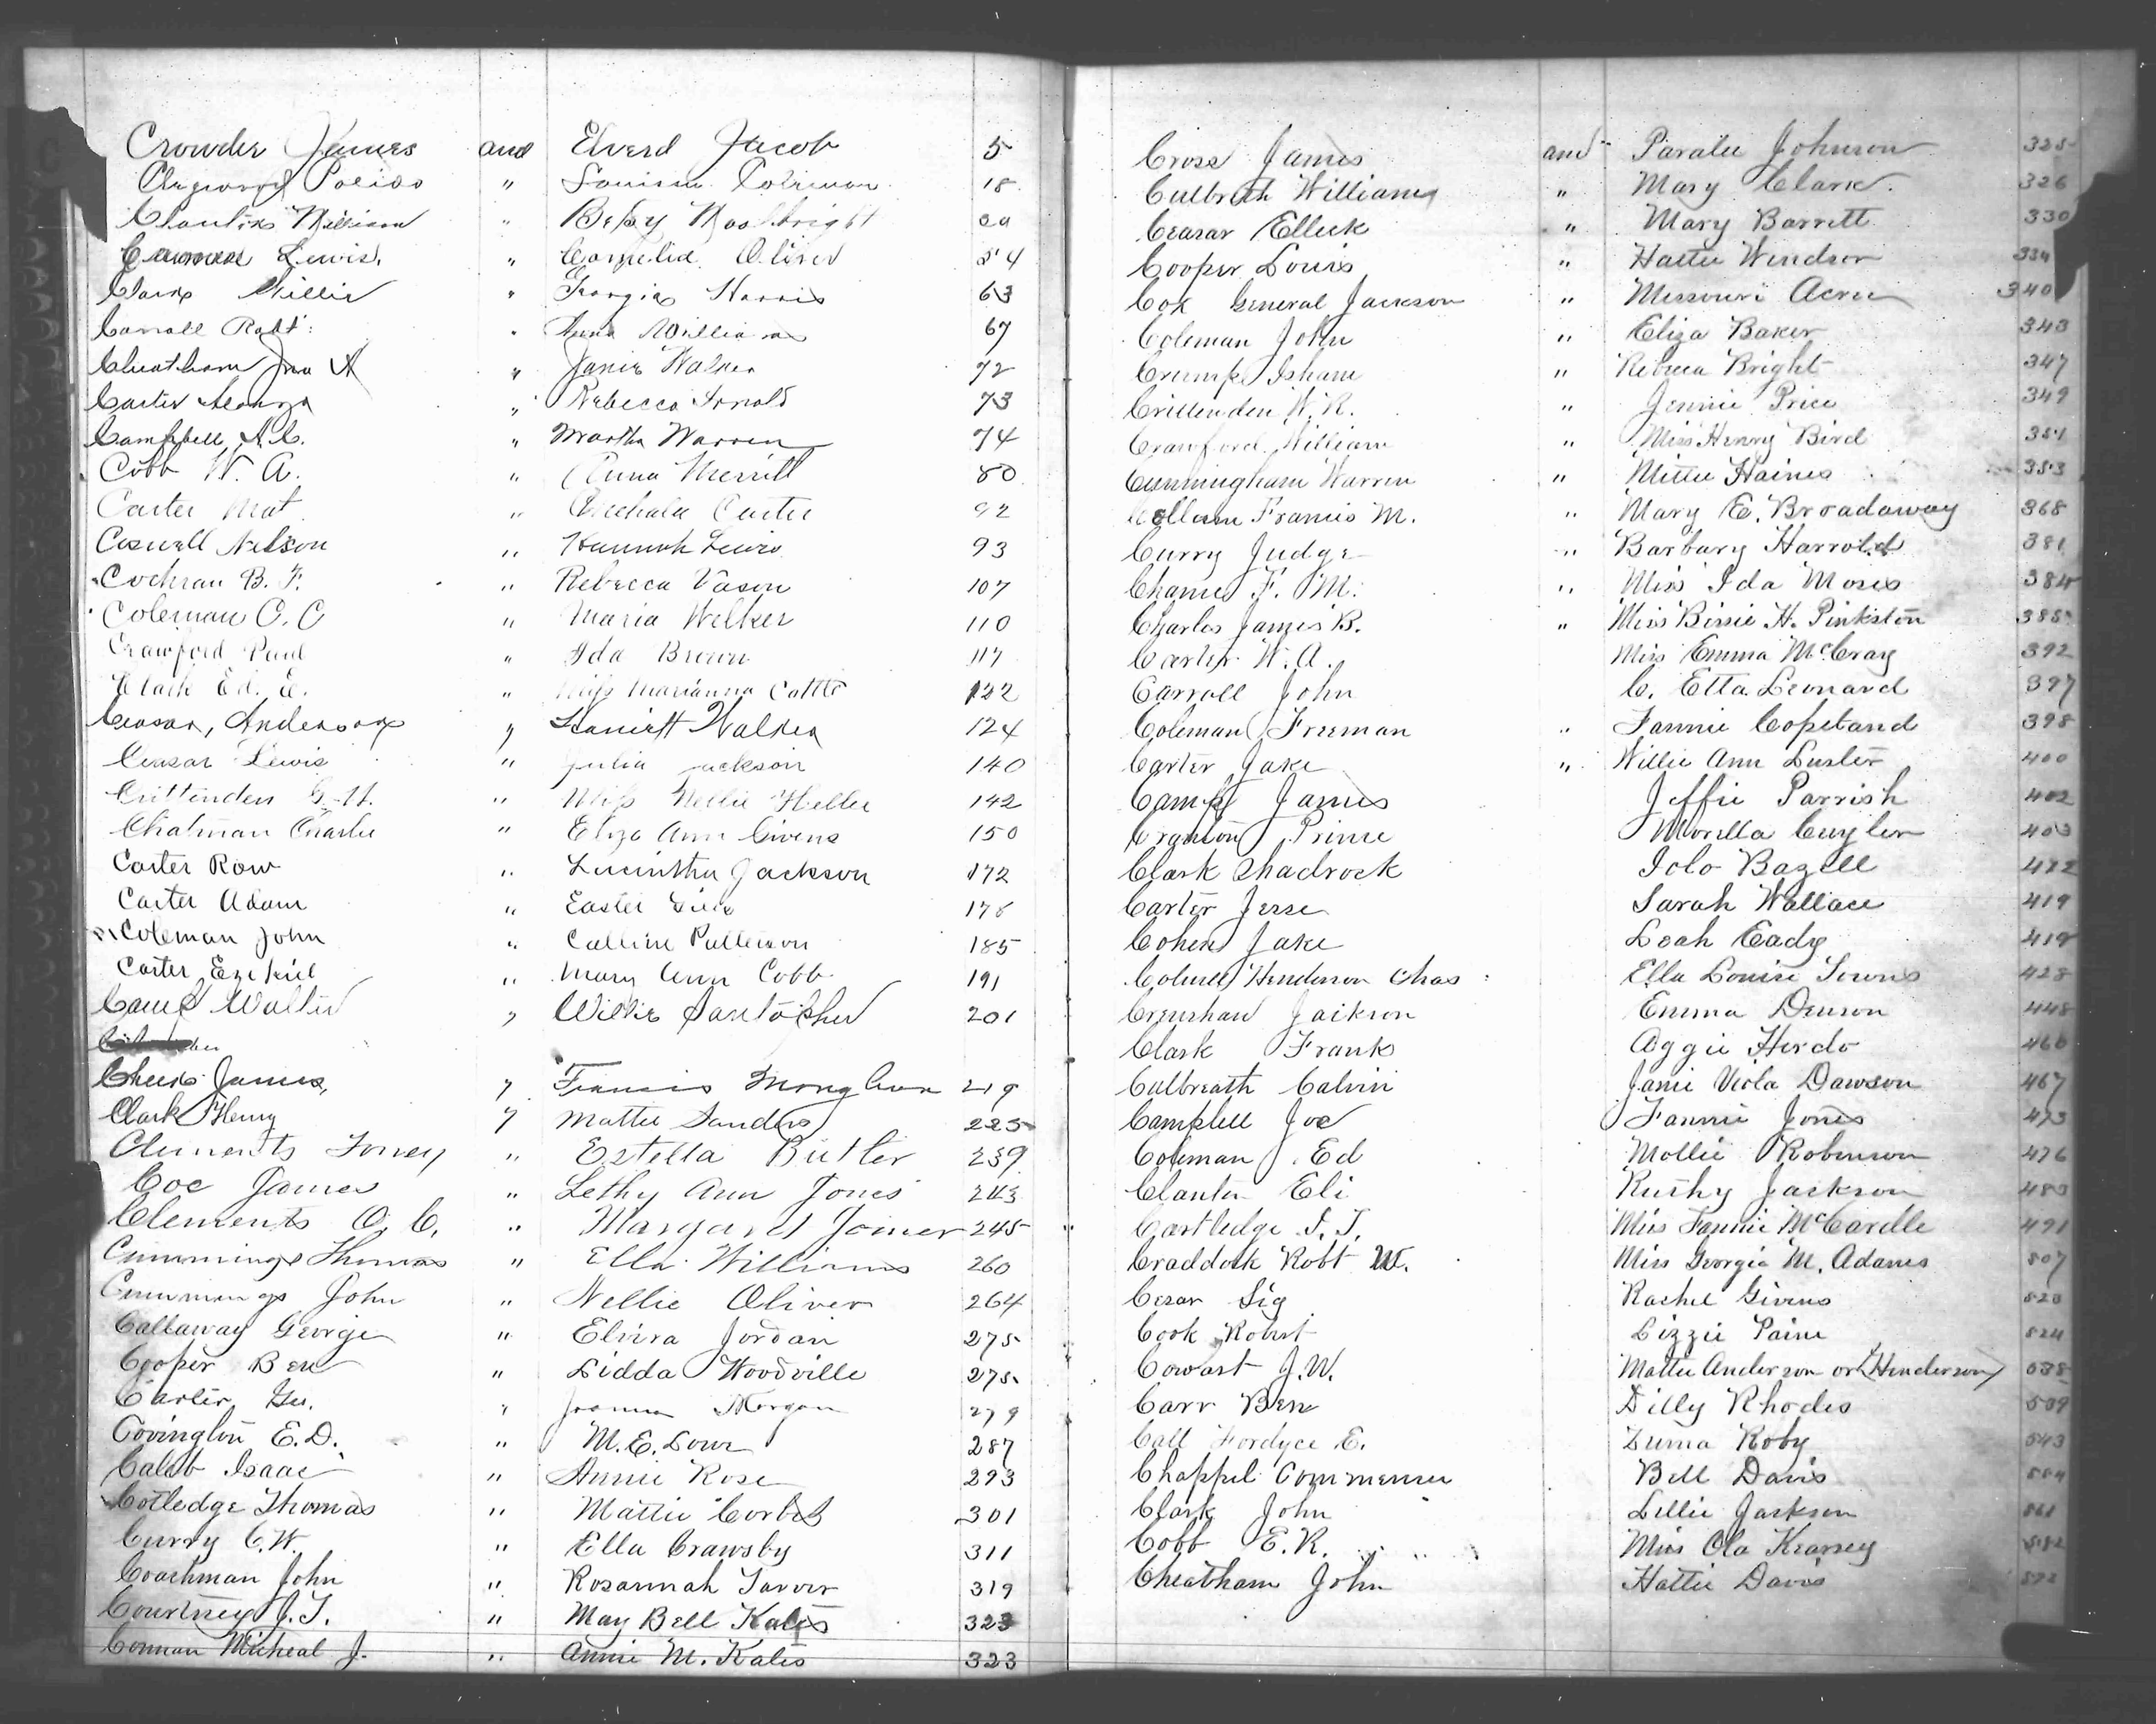 Crowder James and Elverd Jacob 5
" Louisa Coleman 18
William " Betsy
Lewis. " Cornelia Oliver 54
Clark Willis " Georgia Harris 63
Carroll Robt. " Anna Williams 67
Cheatham Jno A " Janie Walker 72
Carter Alonza " Rebecca Arnold 73
Campbell A.C. " Martha Warren 74
Cobb W. A. " Anna Merritt 80
Carter Mat " Carter 92
Caswell Nelson " Hannah Lewis 93
Cochran B. F. " Rebecca Vason 107
Coleman C. C " Maria Walker 110
Crawford Paul " Ida Brown 117
Clark Ed. E. " Miss Marianna 122
Ceasar, Anderson " Walker 124
Ceasar Lewis " Julia Jackson 140
Crittenden G. H. " Miss Nellie Heller 142
Chatman Charlie " Eliza Ann Givens 150
Carter Row " Lucintha Jackson 172
Carter Adam " Easter 178
Coleman John " Calline Patterson 185
Carter Ezekiel " Mary Ann Cobb 191
Camp Walter " Willie 201
Cheek James, " Francis 219
Clark Henry " Mattie Sanders 225
Clements Toney " Estella Butler 239
Coe James " Lethy Ann Jones 243
Clements O. C. " Margaret Joiner 245
Cummings Thomas " Ella Williams 260
Cummings John " Nellie Oliver 264
Callaway George " Elvira Jordan 275
Cooper Ben " Lidda Woodville 275
Carter Geo. " Joanna Morgan 279
Covington E. D. " M. E. Lowe 287
Caleb Isaac " Annie Rose 293
Cotledge Thomas " Mattie Corbet 301
Curry C. W. " Ella Crawsby 311
Coachman John " Rosannah Tarver 319
Courtney J. T. " May Bell Kates 323
Conman Micheal J. " Annie M. Kates 323
Cross James and Paralee Johnson 325
Culbreth William " Mary Clark. 326
Ceasar Elleck " Mary Barrett 330
Cooper Louis " Hattie Windsor 334
Cox General Jackson " Missouri Acree 340
Coleman John " Eliza Baker 343
Crumpe Isham " Rebecca Bright 347
Crittenden W. R. " Jennie Price 349
Crawford William " Miss Henry Bird 351
Cunningham Warren " Mittie Haines 353
Francis M. " Mary E. Broadaway 368
Curry Judge " Barbary Harrold 381
F. M. " Miss Ida Moses 384
Charles James B. " Miss Birsie H. Pinkston 385
Carter W. A. Miss Emma McCray 392
Carroll John C. Etta Leonard 397
Coleman Freeman " Fannie Copeland 398
Carter Jake " Willie Ann Luster 400
Camp James Jeffie Parrish 402
Cranston Prince Morella Cuyler 403
Clark Shadrock Iolo Bazell 412
Carter Jesse Sarah Wallace 419
Cohen Jake Leah Eady 419
Henderson Chas Ella Louise Towns 428
Crenshaw Jackson Emma Denson 448
Clark Frank Aggie Herds 460
Culbreath Calvin Janie Viola Dawson 467
Campbell Joe Fannie Jones 473
Coleman Ed Mollie Robinson 476
Clanton Eli Rushy Jackson 483
Cartledge T. J. Miss Fannie McCardle 491
Craddock Robt W. Miss Georgia M. Adams 507
Cesar Sig Rachel Givens 520
Cook Robert Lizzie Paine 524
Cowart J. W. Mattie Anderson or (Henderson) 538
Carr Ben Dilly Rhodes 509
Call Fordyce E. Zuma Roby 543
Chappel Bell Davis 554
Clark John Lillie Jackson 561
Cobb E. R. Miss Ola Kearsey
Cheatham John Hattie Davis 572